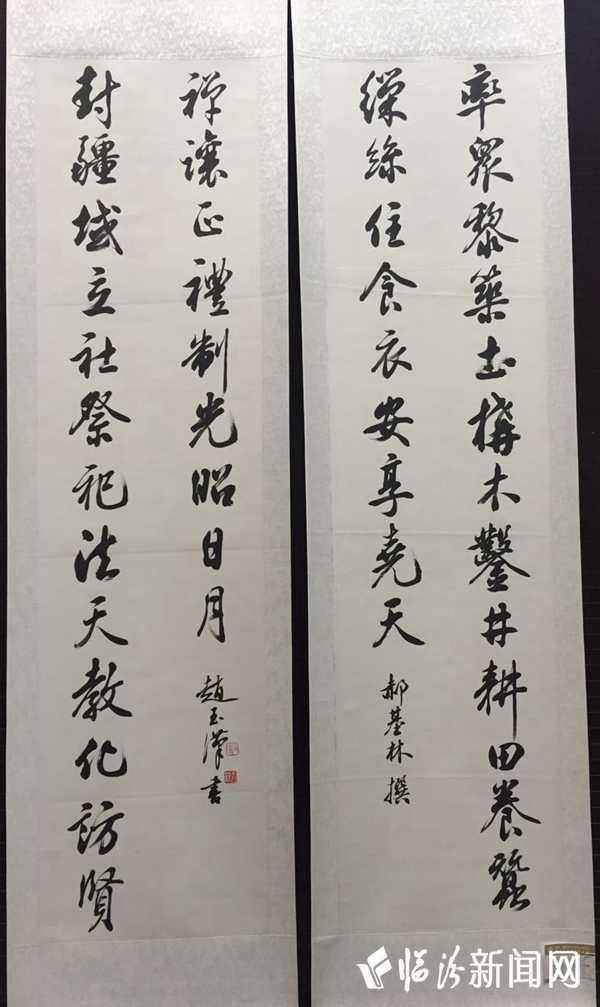 率眾黎築土構木鑿井耕田養蠶
繅絲住食衣安享堯天
郝基林撰
封疆域立社祭祀法天教化訪賢
禪讓正禮制光昭日月
趙玉漢書
临汾新闻网